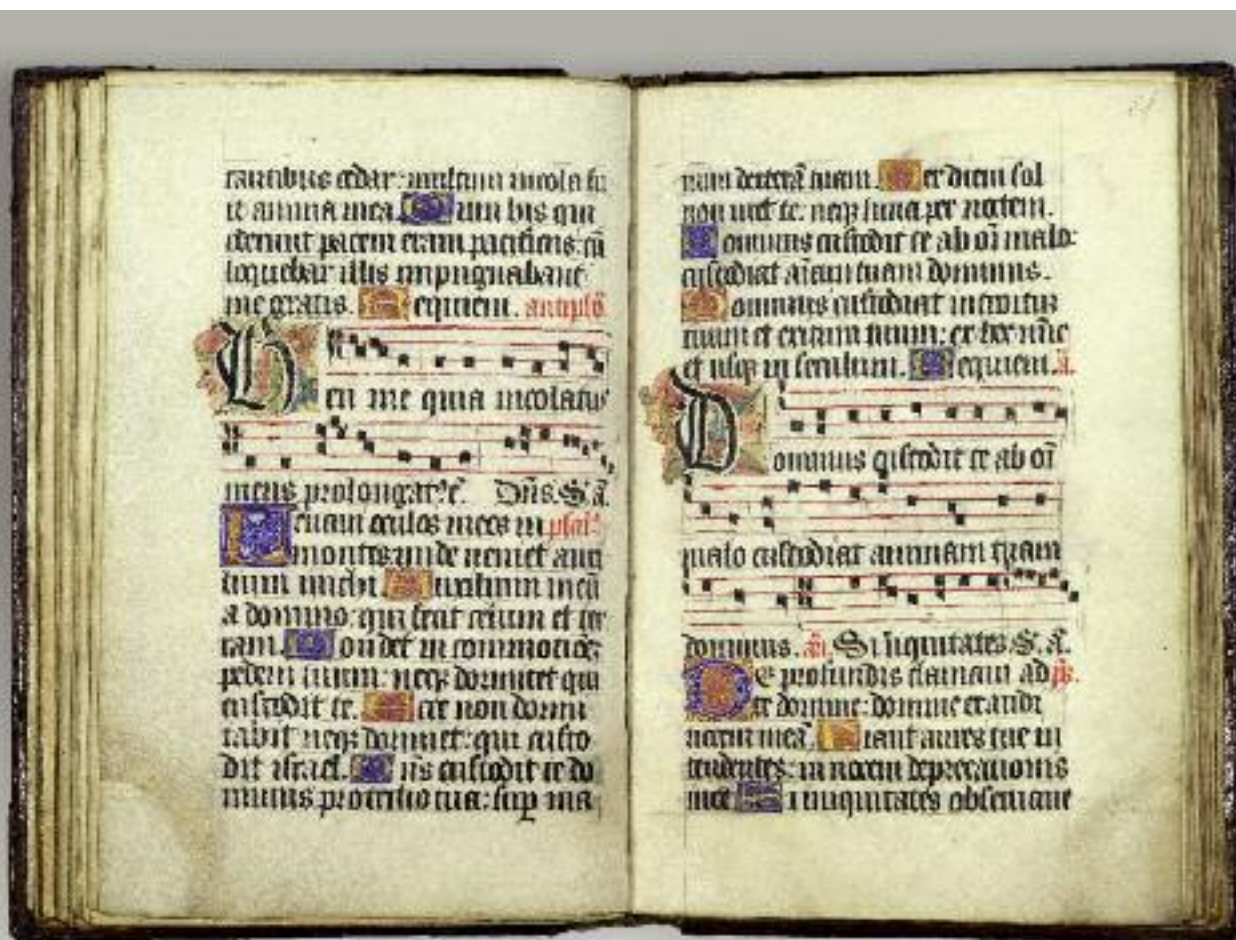 tantibus cedar: multum incola fu
it anima mea. Cum his qui
oderunt pacem eram pacificus: cū
loquebar illis impugnabant
me gratis. Requiem. antiphō
Heu me quia incolatus
meus prolongat᷒ ē. Dn̄s. S. ā.
Leuaui oculos meos in psal᷒
montes unde ueniet auxi
lium michi. Auxilium meū
a domino: qui fecit celum et ter
ram. Non det in commotiōē
pedem tuum: neqꝫ dormitet qui
custodit te. Ecce non dormi
tabit neqꝫ dormiet: qui custo
dit israel. Dn̄s custodit te do
minus protectio tua: sup ma
num dexterā tuam. Per diem sol
non uret te: neqꝫ luna per noctem.
Dominus custodit te ab oī malo:
custodiat aīam tuam dominus.
Dominus custodiat introitum
tuum et exitum tuum: ex hoc nūc
et usqꝫ in seculum. Requiem. ā.
Dominus custodit te ab oī
malo custodiat animam tuam
dominus. ā. Si iniquitates. S. ā.
De profundis clamaui ad ps.
te domine: domine exaudi
uocem meā. Fiant aures tue in
tendentes: in uocem deprecationis
mee Si iniquitates obseruaue